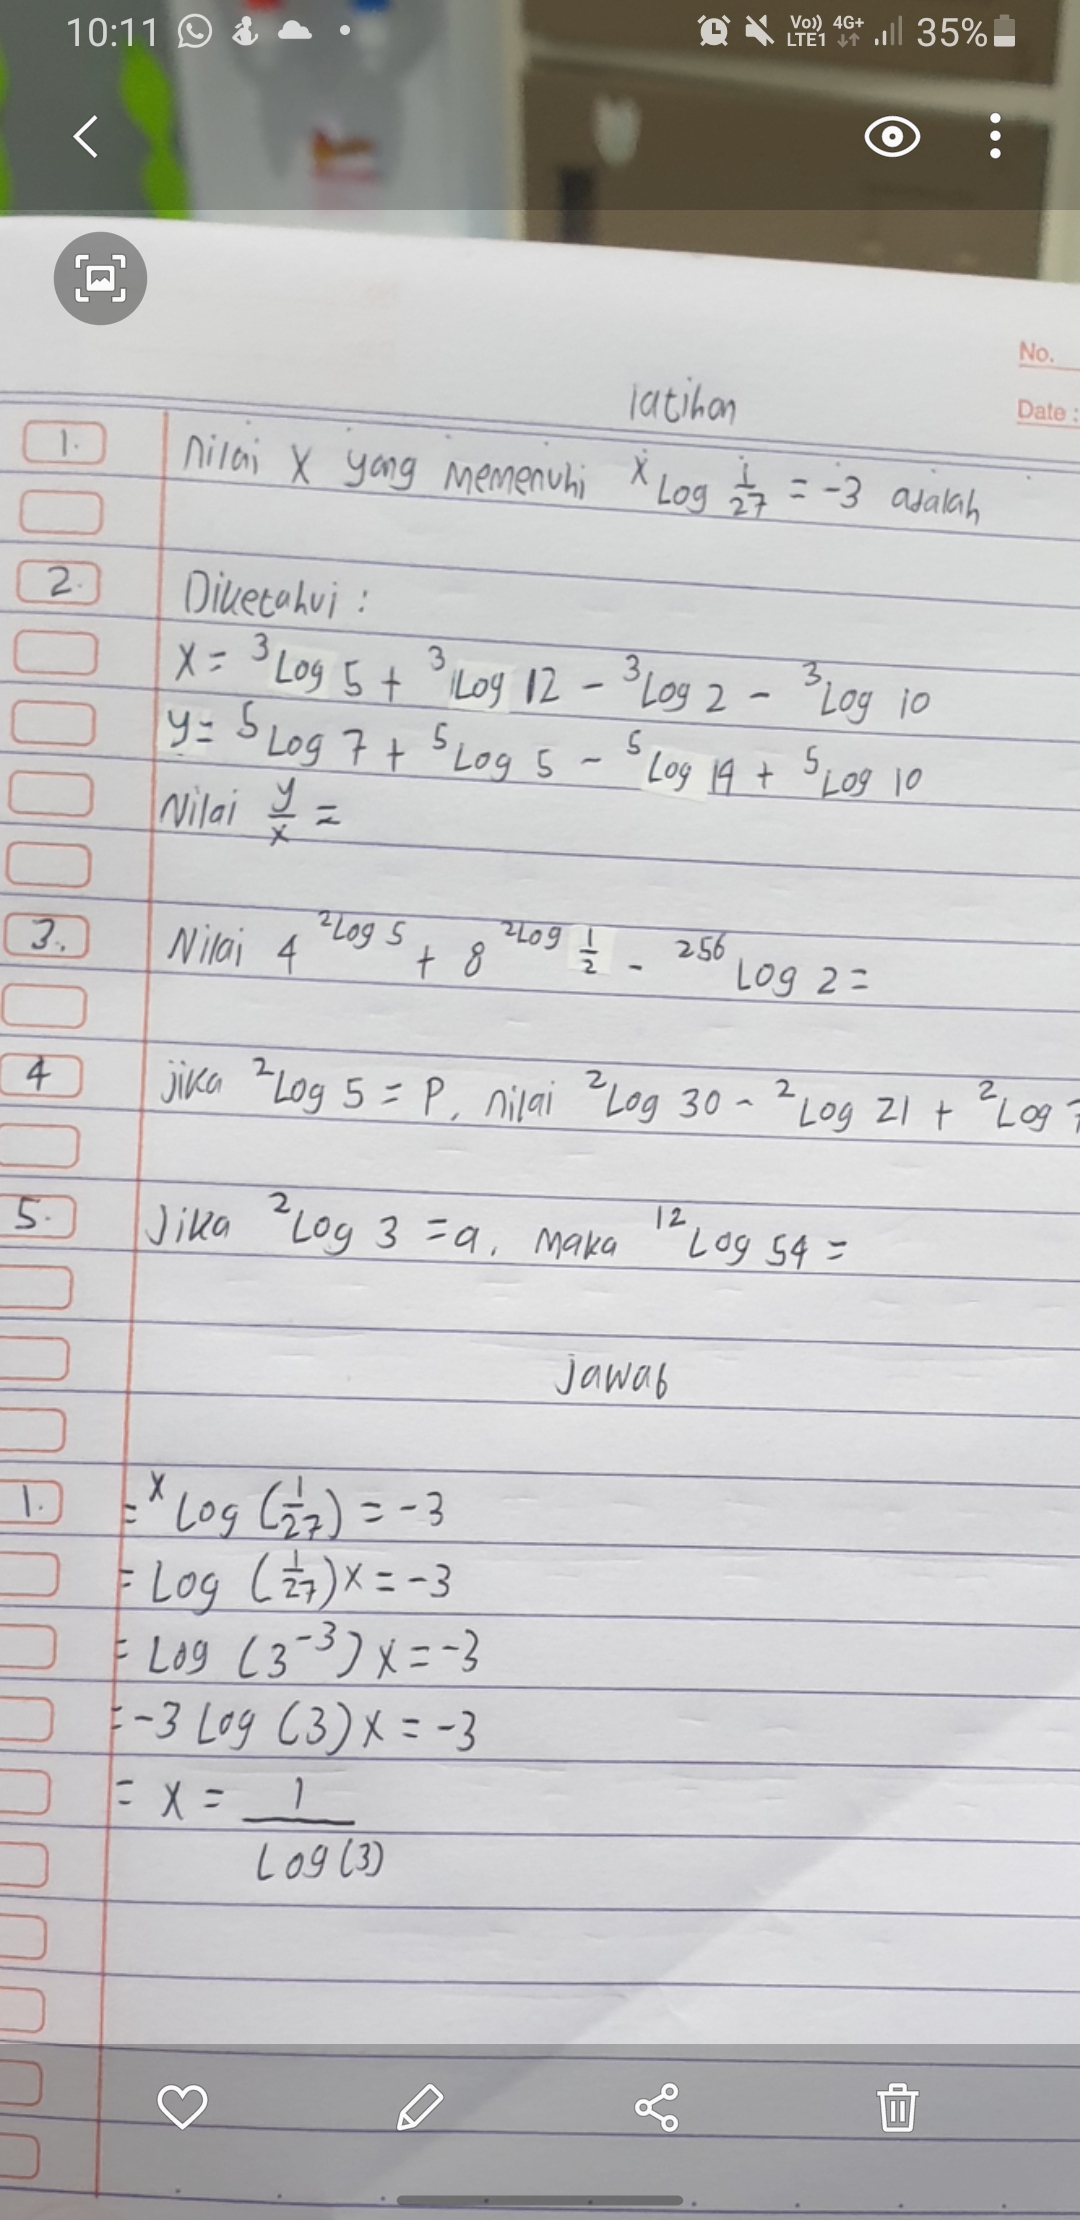 10:11
Vo)) LTE1 4G+ 35%
No.
Date:
latihan
1. Nilai x yang memenuhi ˣLog 1/27 = -3 adalah
2. Diketahui :
x = ³Log 5 + ³Log 12 - ³Log 2 - ³Log 10
y = ⁵Log 7 + ⁵Log 5 - ⁵Log 14 + ⁵Log 10
Nilai y/x =
3. Nilai 4^(²Log 5) + 8^(²Log 1/2) - ²⁵⁶Log 2 =
4 jika ²Log 5 = P, nilai ²Log 30 - ²Log 21 + ²Log
5. Jika ²Log 3 = a, maka ¹²Log 54 =
jawab
1. = ˣLog (1/27) = -3
= Log (1/27) x = -3
= Log (3⁻³) x = -3
= -3 Log (3) x = -3
= x = 1/Log(3)